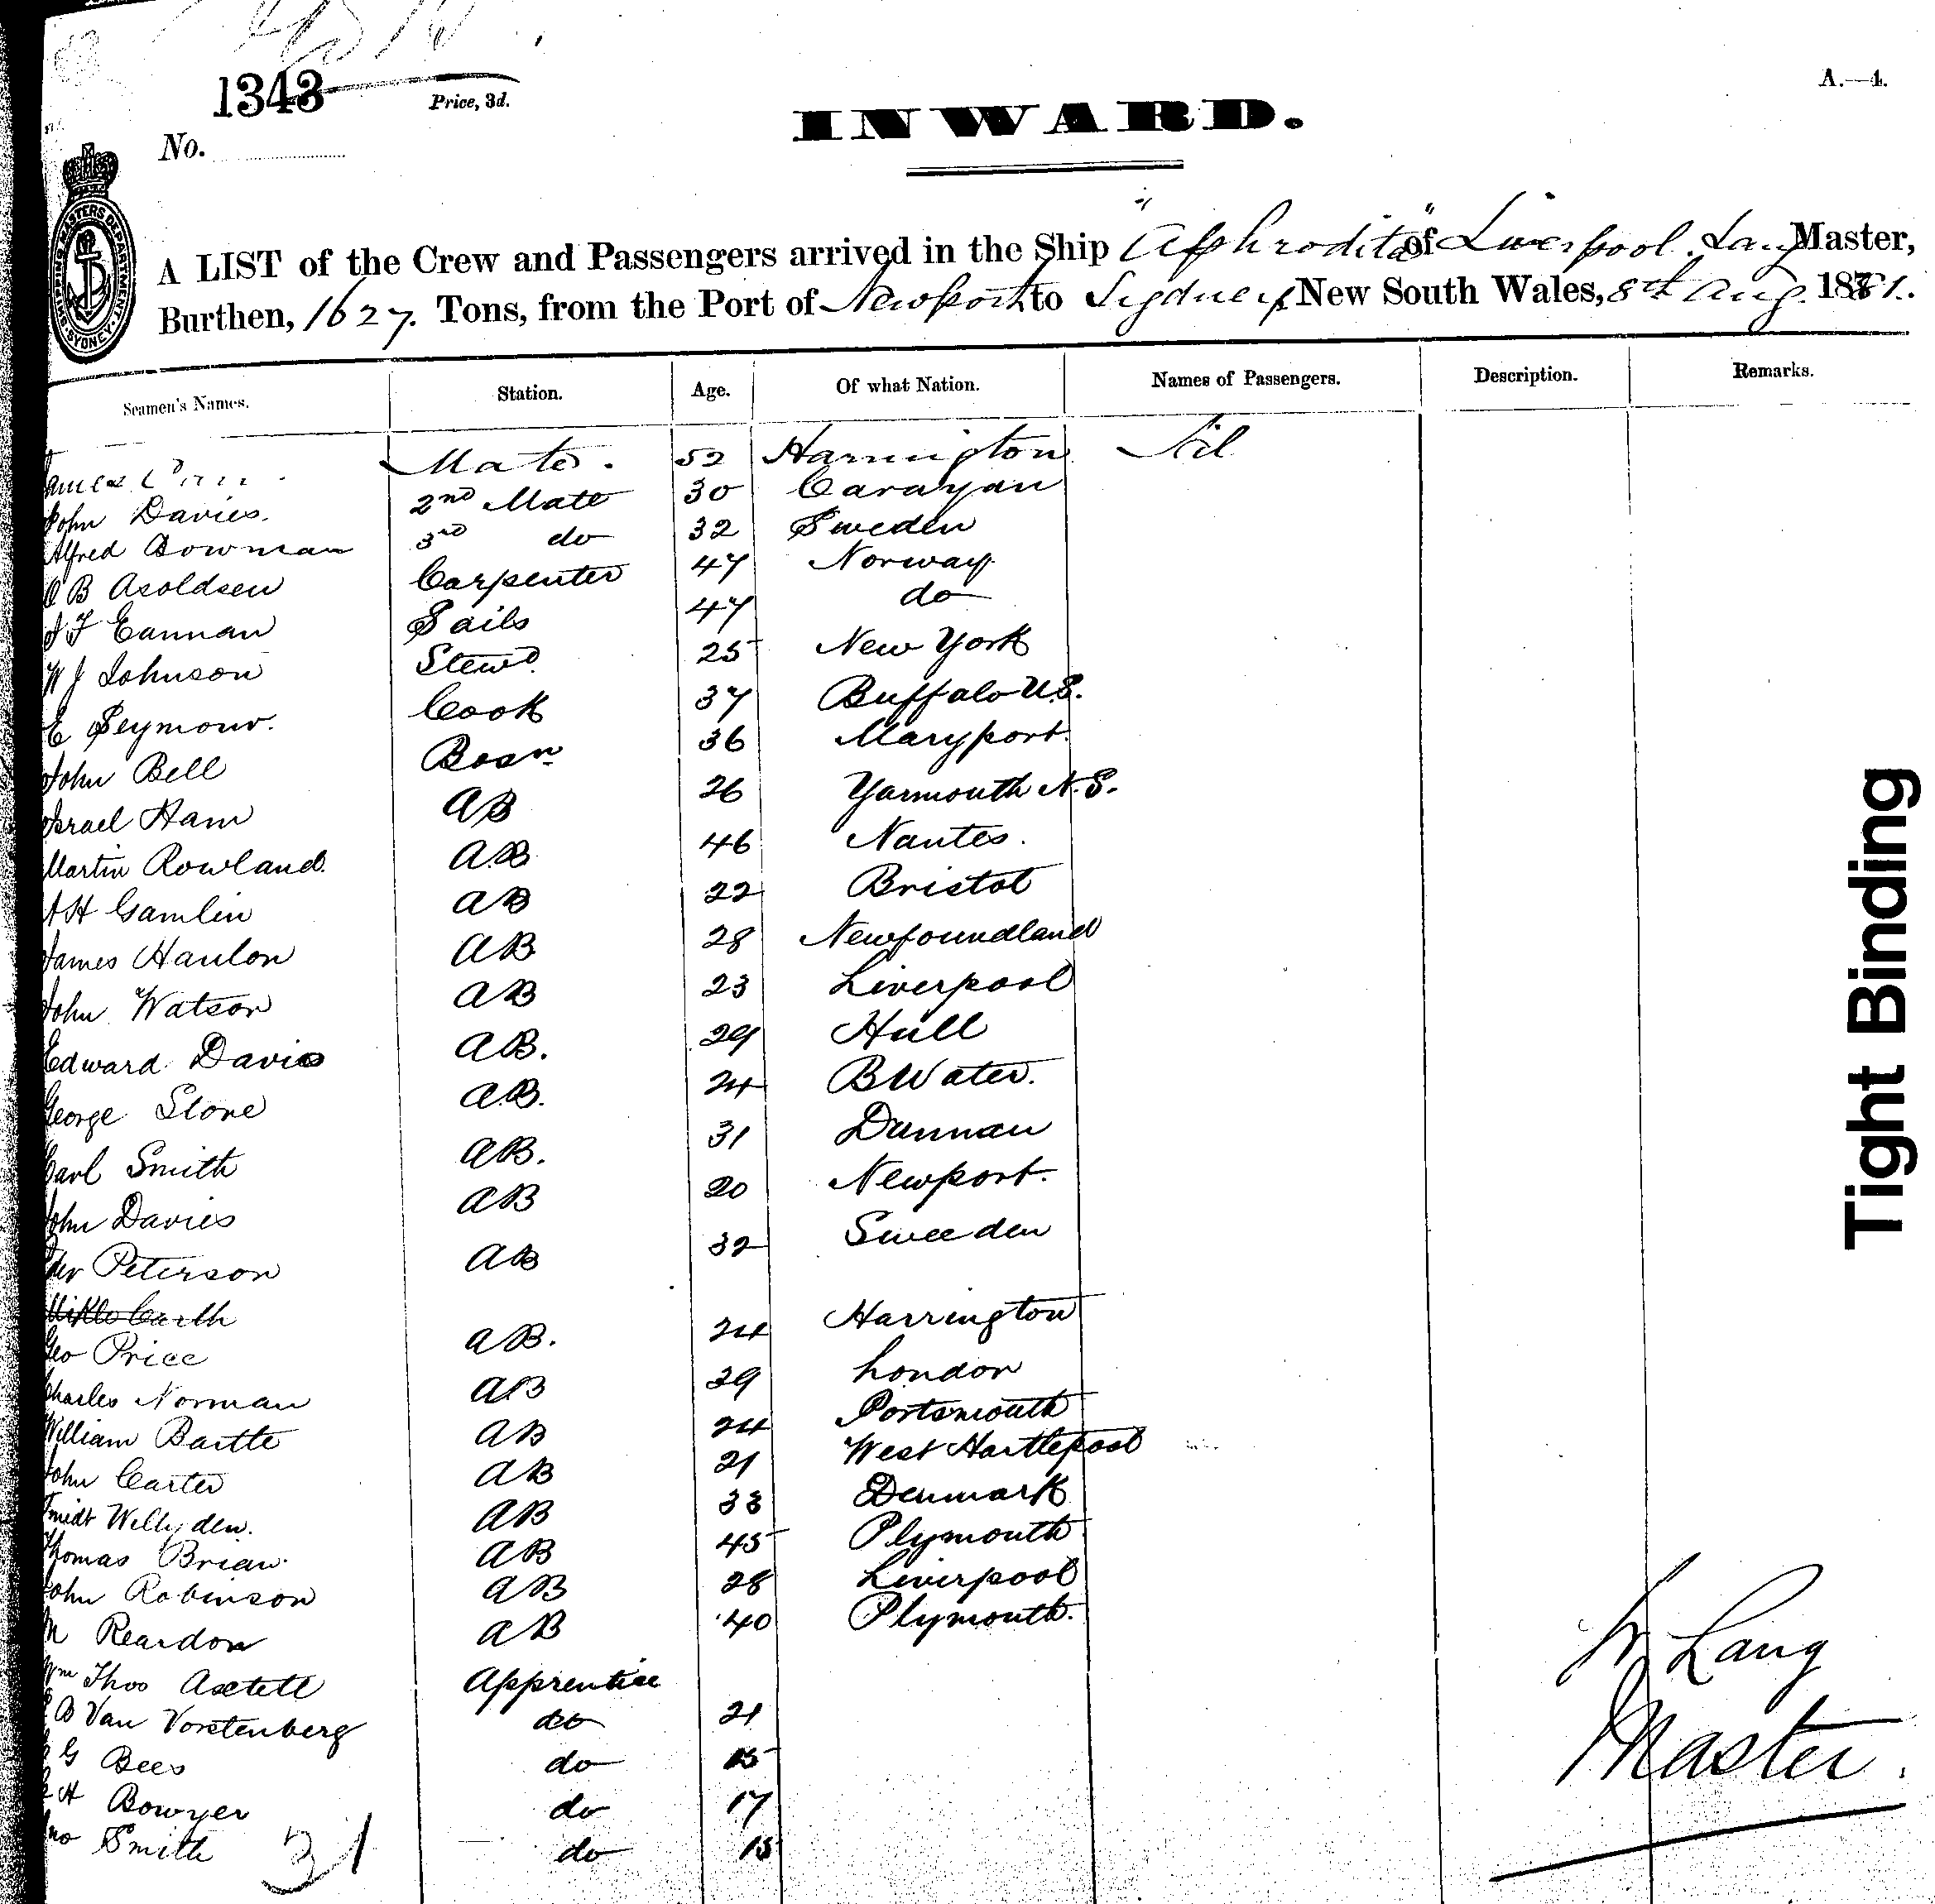 1343
Price, 3d.
A.—4.
No.
INWARD.
A LIST of the Crew and Passengers arrived in the Ship "Aphrodita" of Liverpool. Lang Master,
Burthen, 1627. Tons, from the Port of Newport to Sydney, New South Wales, 8th Aug. 1881.
Seamen's Names. Station. Age. Of what Nation. Names of Passengers. Description. Remarks.
James Mate. 52 Harrington Nil
John Davies. 2nd Mate 30 Carayan
Alfred Bowman 3rd do 32 Sweden
O B Asoldsen Carpenter 47 Norway.
J F Eannan Sails 47 do
W J Johnson Stewd. 25 New York
E Seymour. Cook 37 Buffalo U.S.
John Bell Bosn 36 Maryport.
Israel Ham AB 26 Yarmouth N.S.
Martin Rowland. A.B 46 Nantes.
H Gamlin AB 22 Bristol
James Hanlon AB 28 Newfoundland
John Watson AB 23 Liverpool
Edward Davis AB. 29 Hull
George Stone A.B. 24 BWater.
Carl Smith AB. 31 Dunnan
John Davies AB 20 Newport.
Peterson AB 32 Sweeden
Geo Price AB. 24 Harrington
Charles Norman AB 29 London
William Bartle AB 24 Portsmouth
John Carter AB 21 West Hartlepool
AB 33 Denmark
Thomas Brian. AB 45 Plymouth
John Robinson AB 28 Liverpool
M Reardon AB 40 Plymouth.
Wm Thos Axtell Apprentice
B Van Vorstenberg do 21
G Bees do 15
H Bowyer do 17
Jno Smith do 15
31
W Lang
Master.
Tight Binding